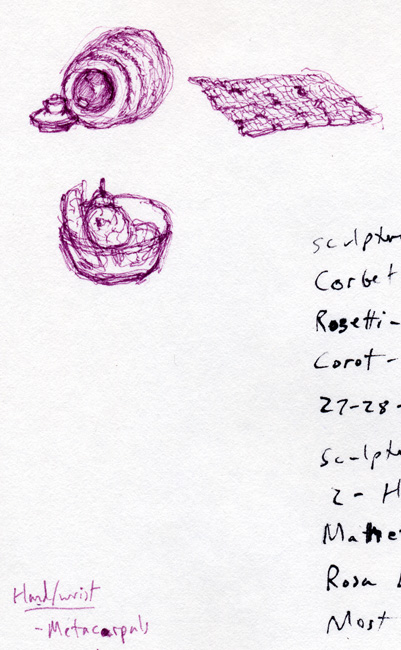 sculptu
Corbet
Rosetti-
Corot-
27-28-
sculptu
2- H
Matte
Rosa
Most
Hand/wrist
-Metacarpals